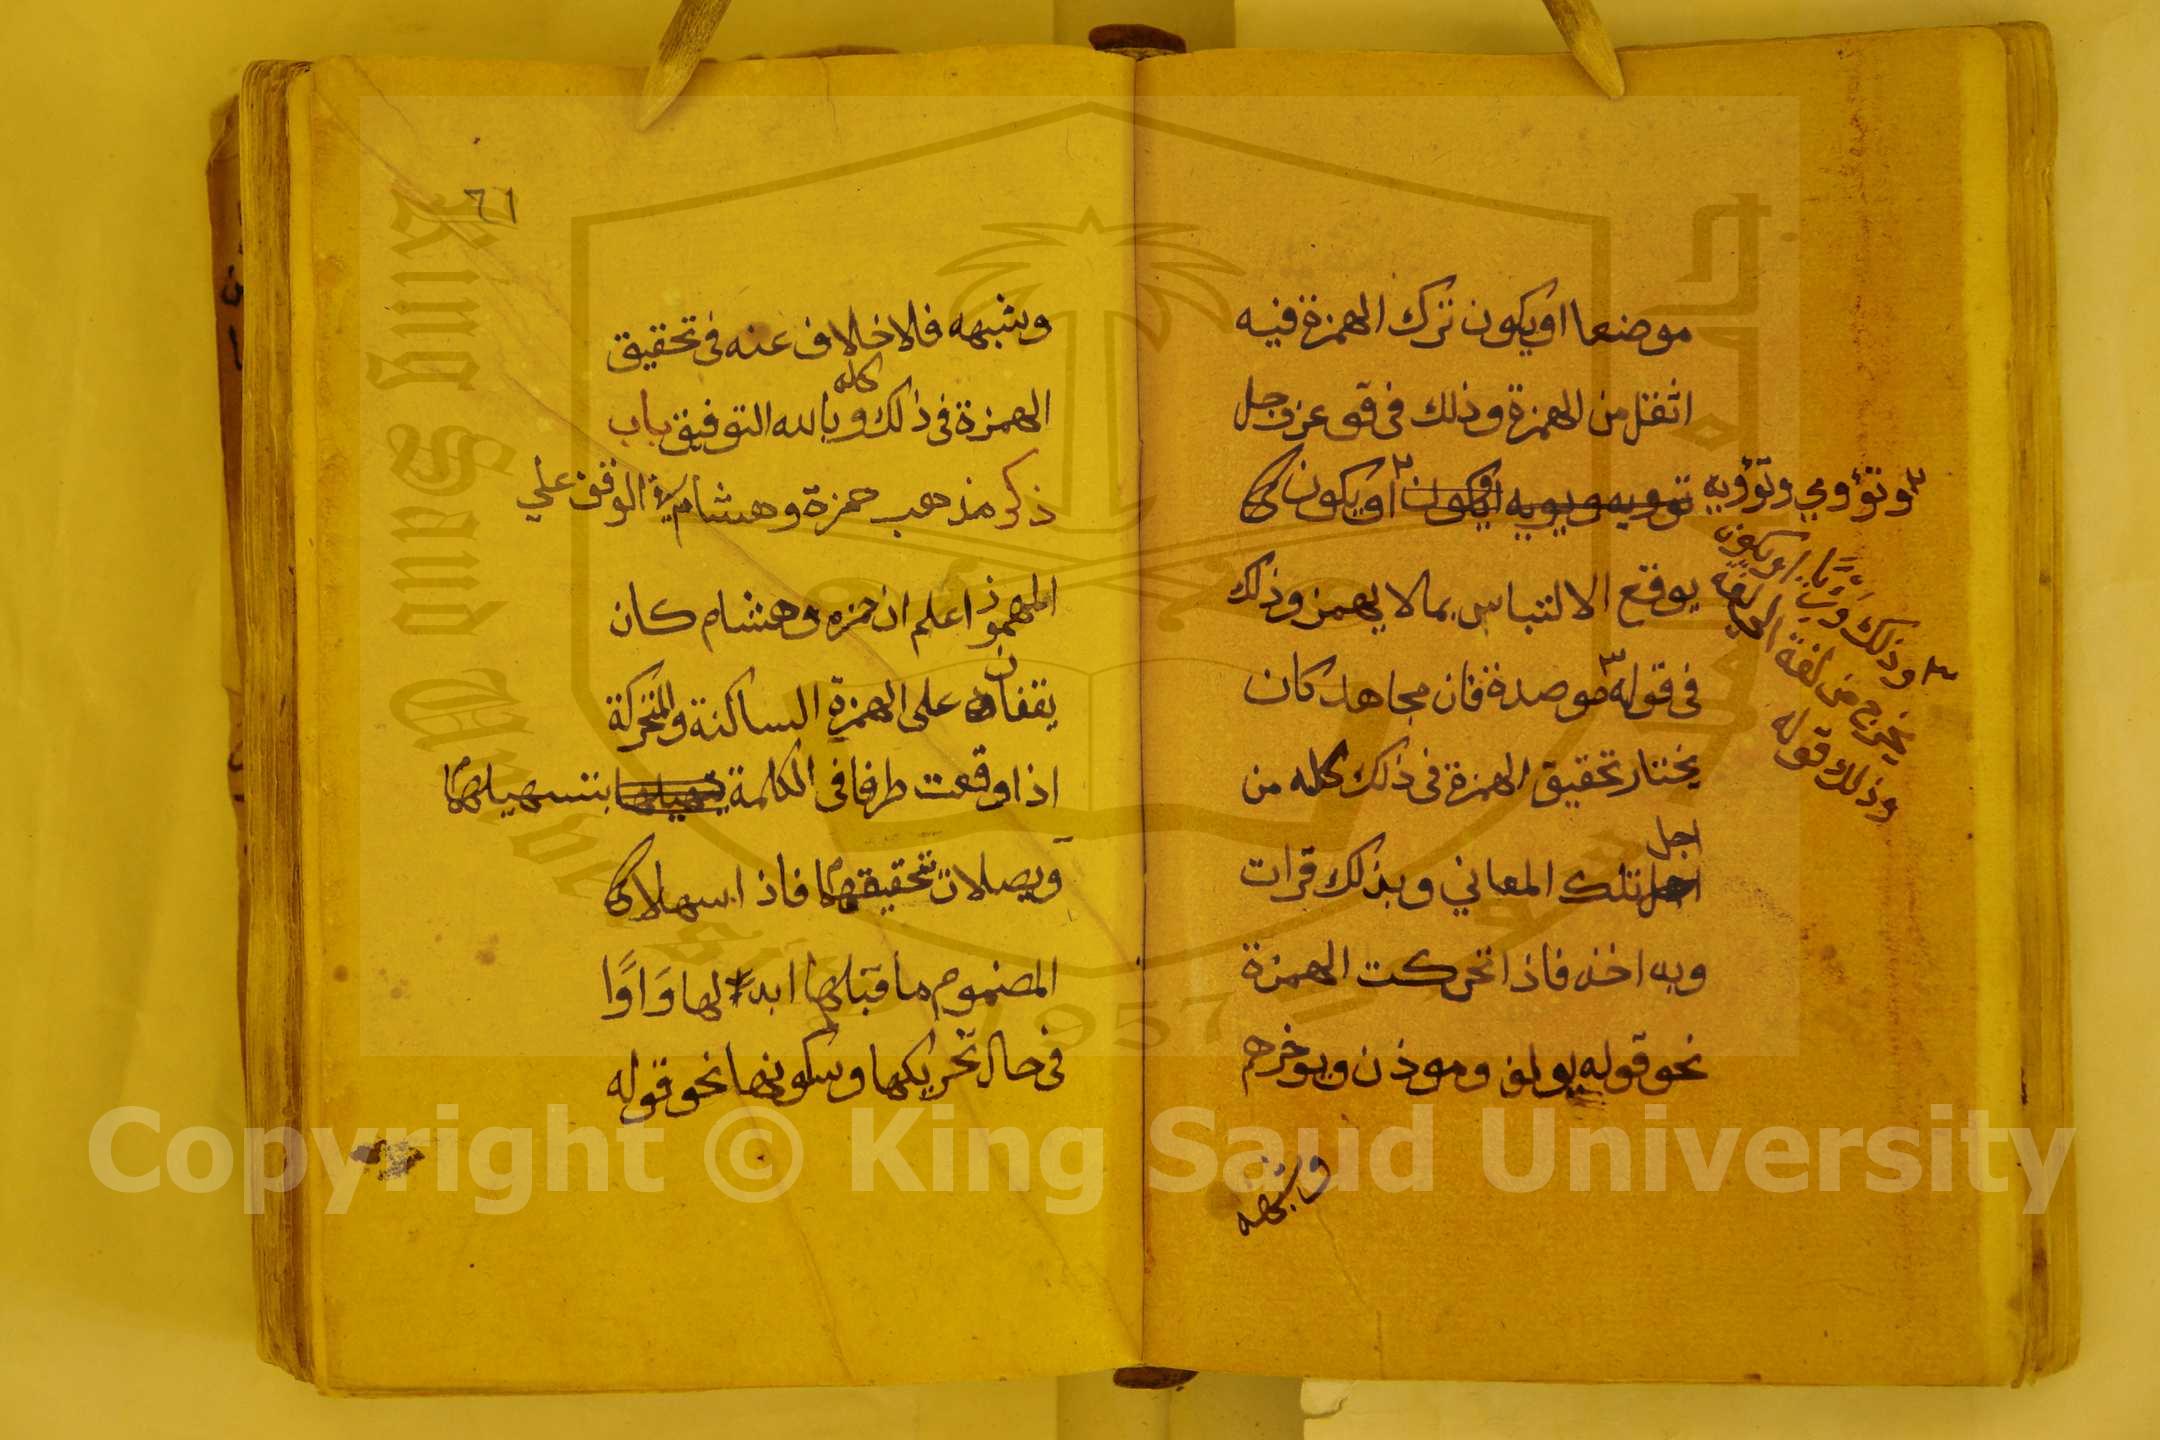 موضعا او يكون ترك الهمزة فيه
اثقل من الهمزة وذلك فى قو عز وجل
وتؤوي وتؤويه تؤويه ويويه او يكون كى
يوقع الالتباس بما لا يهمز وذلك
فى قوله موصدة فان مجاهد كان
يختار تحقيق الهمزة فى ذلك كله من
اجل
تلك المعاني وبذلك قرات
وبه اخذ فاذا تحركت الهمزة
نحو قوله يولف وموذن ويوخرهم
وشبهه
وذلك
او يكون
يخرج من لغة الى لغة
وذلك قوله
61
وشبهه فلا خلاف عنه فى تحقيق
كله
الهمزة فى ذلك وبالله التوفيق باب
ذكر مذهب حمزة وهشام الوقف علي
المهموز اعلم ان حمزه وهشام كان
يقفان على الهمزة الساكنة والمتحركة
اذا وقعت طرفا فى الكلمة بتسهيلها
ويصلان بتحقيقها فاذا سهلا
المضموم ما قبلها ابدلها وَاوًا
فى حال تحريكها وسكونها نحو قوله
King Saud University
1957
Copyright © King Saud University